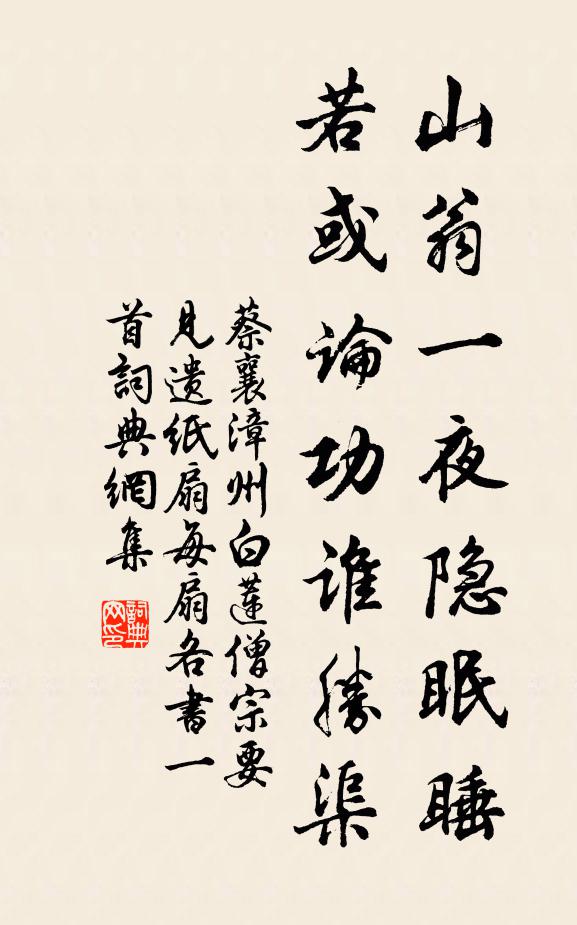 山翁一夜隐眠睡
若或論功誰勝渠
蔡襄漳州白蓮僧宗要
見遗纸扇每扇各書一
首詞典網集
詞典
网印